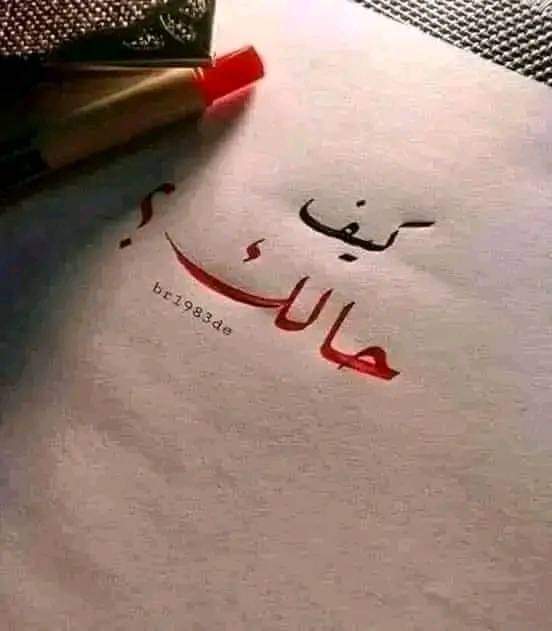 كيف
حالك ؟
br1983de